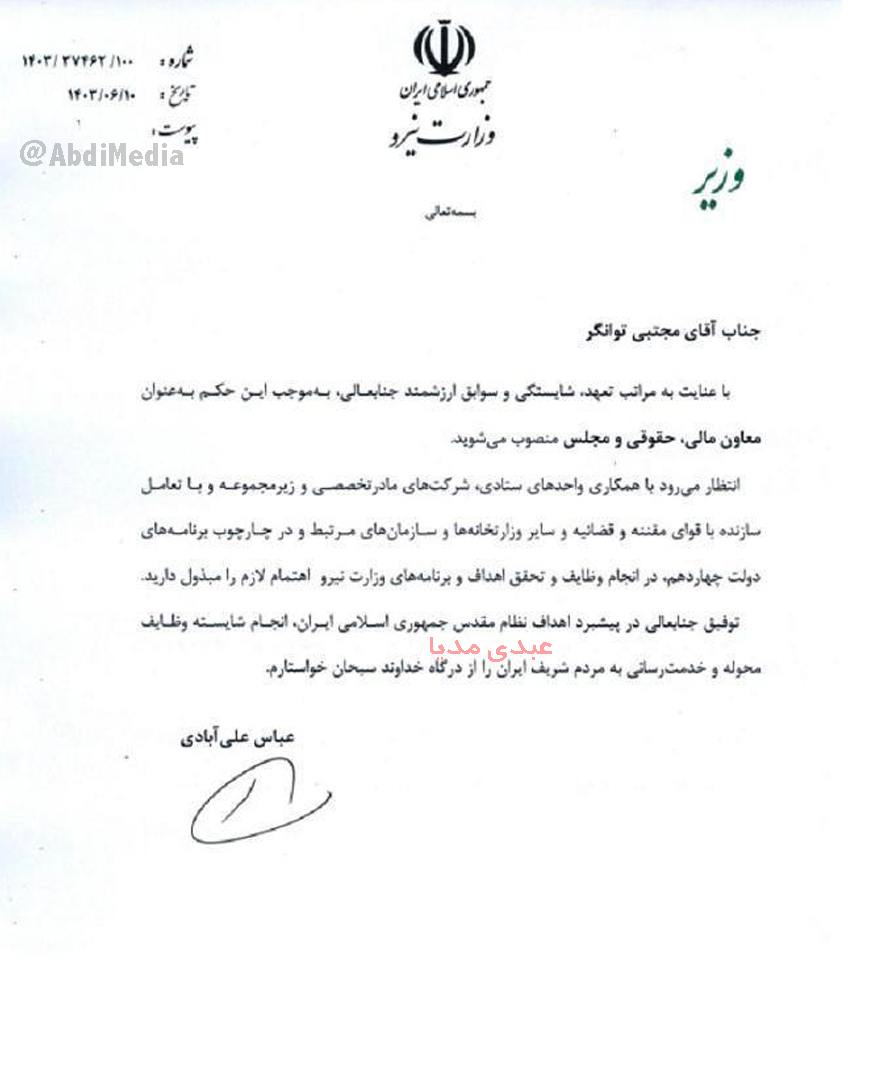 شماره: ۱۴۰۳/۲۷۴۶۲/۱۰۰
تاریخ: ۱۴۰۳/۰۶/۱۰
پیوست:
@AbdiMedia
جمهوری اسلامی ایران
وزارت نیرو
وزیر
بسمه‌تعالی
جناب آقای مجتبی توانگر
با عنایت به مراتب تعهد، شایستگی و سوابق ارزشمند جنابعالی، به‌موجب این حکم به‌عنوان
معاون مالی، حقوقی و مجلس منصوب می‌شوید.
انتظار می‌رود با همکاری واحدهای ستادی، شرکت‌های مادرتخصصی و زیرمجموعه و با تعامل
سازنده با قوای مقننه و قضائیه و سایر وزارتخانه‌ها و سازمان‌های مرتبط و در چارچوب برنامه‌های
دولت چهاردهم، در انجام وظایف و تحقق اهداف و برنامه‌های وزارت نیرو اهتمام لازم را مبذول دارید.
توفیق جنابعالی در پیشبرد اهداف نظام مقدس جمهوری اسلامی ایران، انجام شایسته وظایف
عبدی مدیا
محوله و خدمت‌رسانی به مردم شریف ایران را از درگاه خداوند سبحان خواستارم.
عباس علی‌آبادی